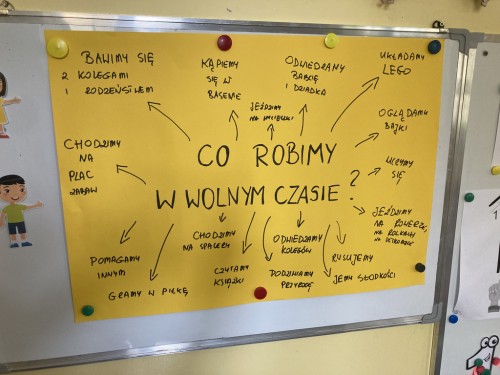 BAWIMY SIĘ
Z KOLEGAMI
I RODZEŃSTWEM
KĄPIEMY
SIĘ W
BASENIE
JEŹDZIMY
NA WYCIECZKI
ODWIEDZAMY
BABCIĘ
I DZIADKA
UKŁADAMY
LEGO
OGLĄDAMY
BAJKI
UCZYMY
SIĘ
JEŹDZIMY
NA ROWERZE,
NA ROLKACH,
NA
CHODZIMY
NA
PLAC
ZABAW
CO ROBIMY
W WOLNYM CZASIE?
POMAGAMY
INNYM
GRAMY W PIŁKĘ
CHODZIMY
NA SPACERY
CZYTAMY
KSIĄŻKI
ODWIEDZAMY
KOLEGÓW
PODZIWIAMY
PRZYRODĘ
RYSUJEMY
JEMY SŁODKOŚCI